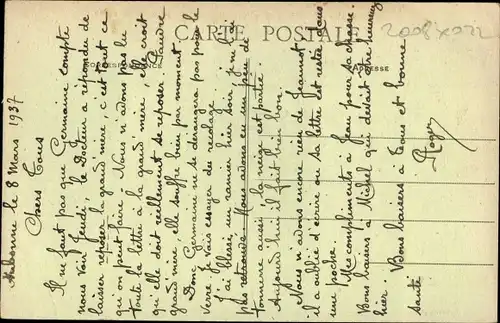 CARTE POSTALE
CORRESPONDANCE
ADRESSE
2008X022
Aubonne le 8 Mars 1937
Chers Tous
Il ne faut pas que Germaine compte
nous voir Jeudi, le Docteur a répondu de
laisser reposer la grand'mère, c'est tout ce
qu'on peut faire. Nous n'avons pas lu
toute la lettre à la grand'mère, elle croit
qu'elle doit seulement se reposer. Pauvre
grand'mère, elle souffre bien par moment
Donc Germaine ne se dérangera pas pour le
verre, je vais essayer du recolage
J'ai blessé un ramier hier soir, je ne l'ai
plus retrouvé. Nous avons eu un peu de
tonnerre aussi, la neige est partie.
Aujourd'hui il fait bien bon.
Nous n'avons encore rien de Jeannot
il a oublié d'écrire ou sa lettre est restée dans
une poche.
Mes compliments à Jean pour sa chasse.
Bons baisers à Michel qui devait être heureux
hier. Bons baisers à Tous et bonne
santé
Roger